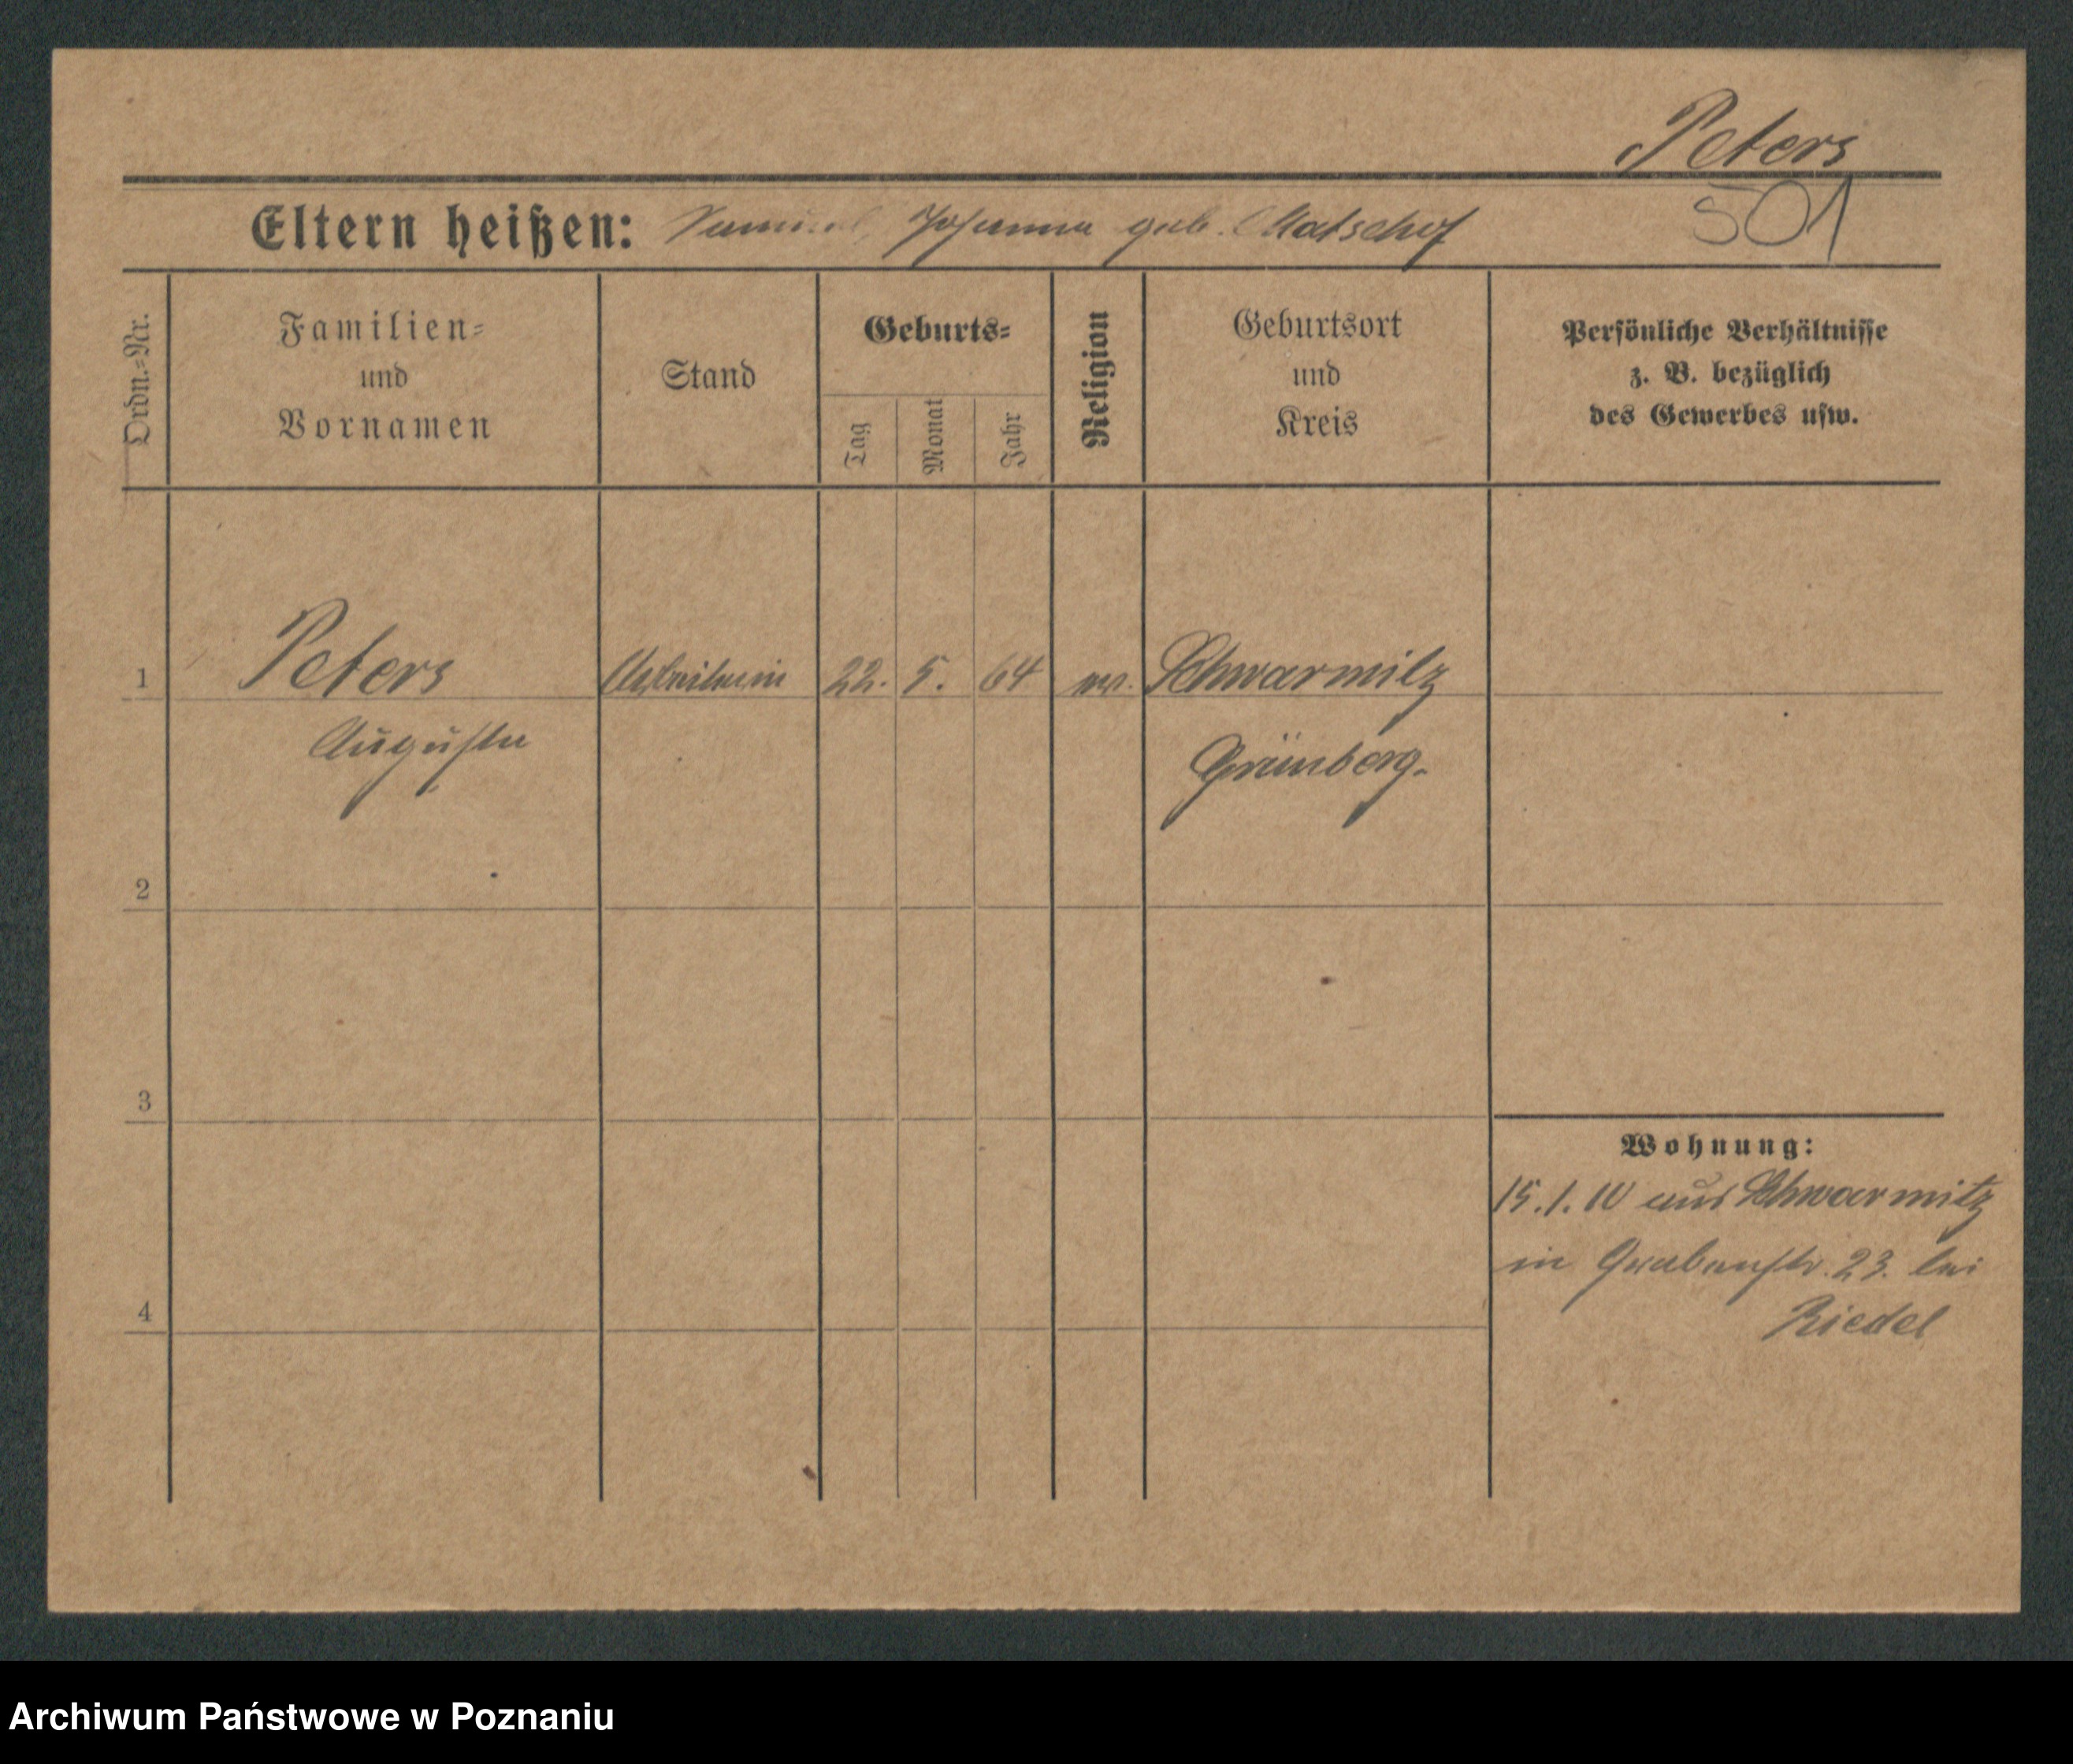 Peters
501
Eltern heißen: Samuel, Johanna geb. Matschof
Ordn.=Nr.
Familien=
und
Vornamen
Stand
Geburts=
Tag
Monat
Jahr
Religion
Geburtsort
und
Kreis
Persönliche Verhältnisse
z. B. bezüglich
des Gewerbes usw.
1 Peters Arbeiterin 22. 5. 64 ev. Schwarmitz
Auguste Grünberg.
2
3
Wohnung:
15.1.10 aus Schwarmitz
in Grabenstr. 23. bei
Riedel
4
Archiwum Państwowe w Poznaniu